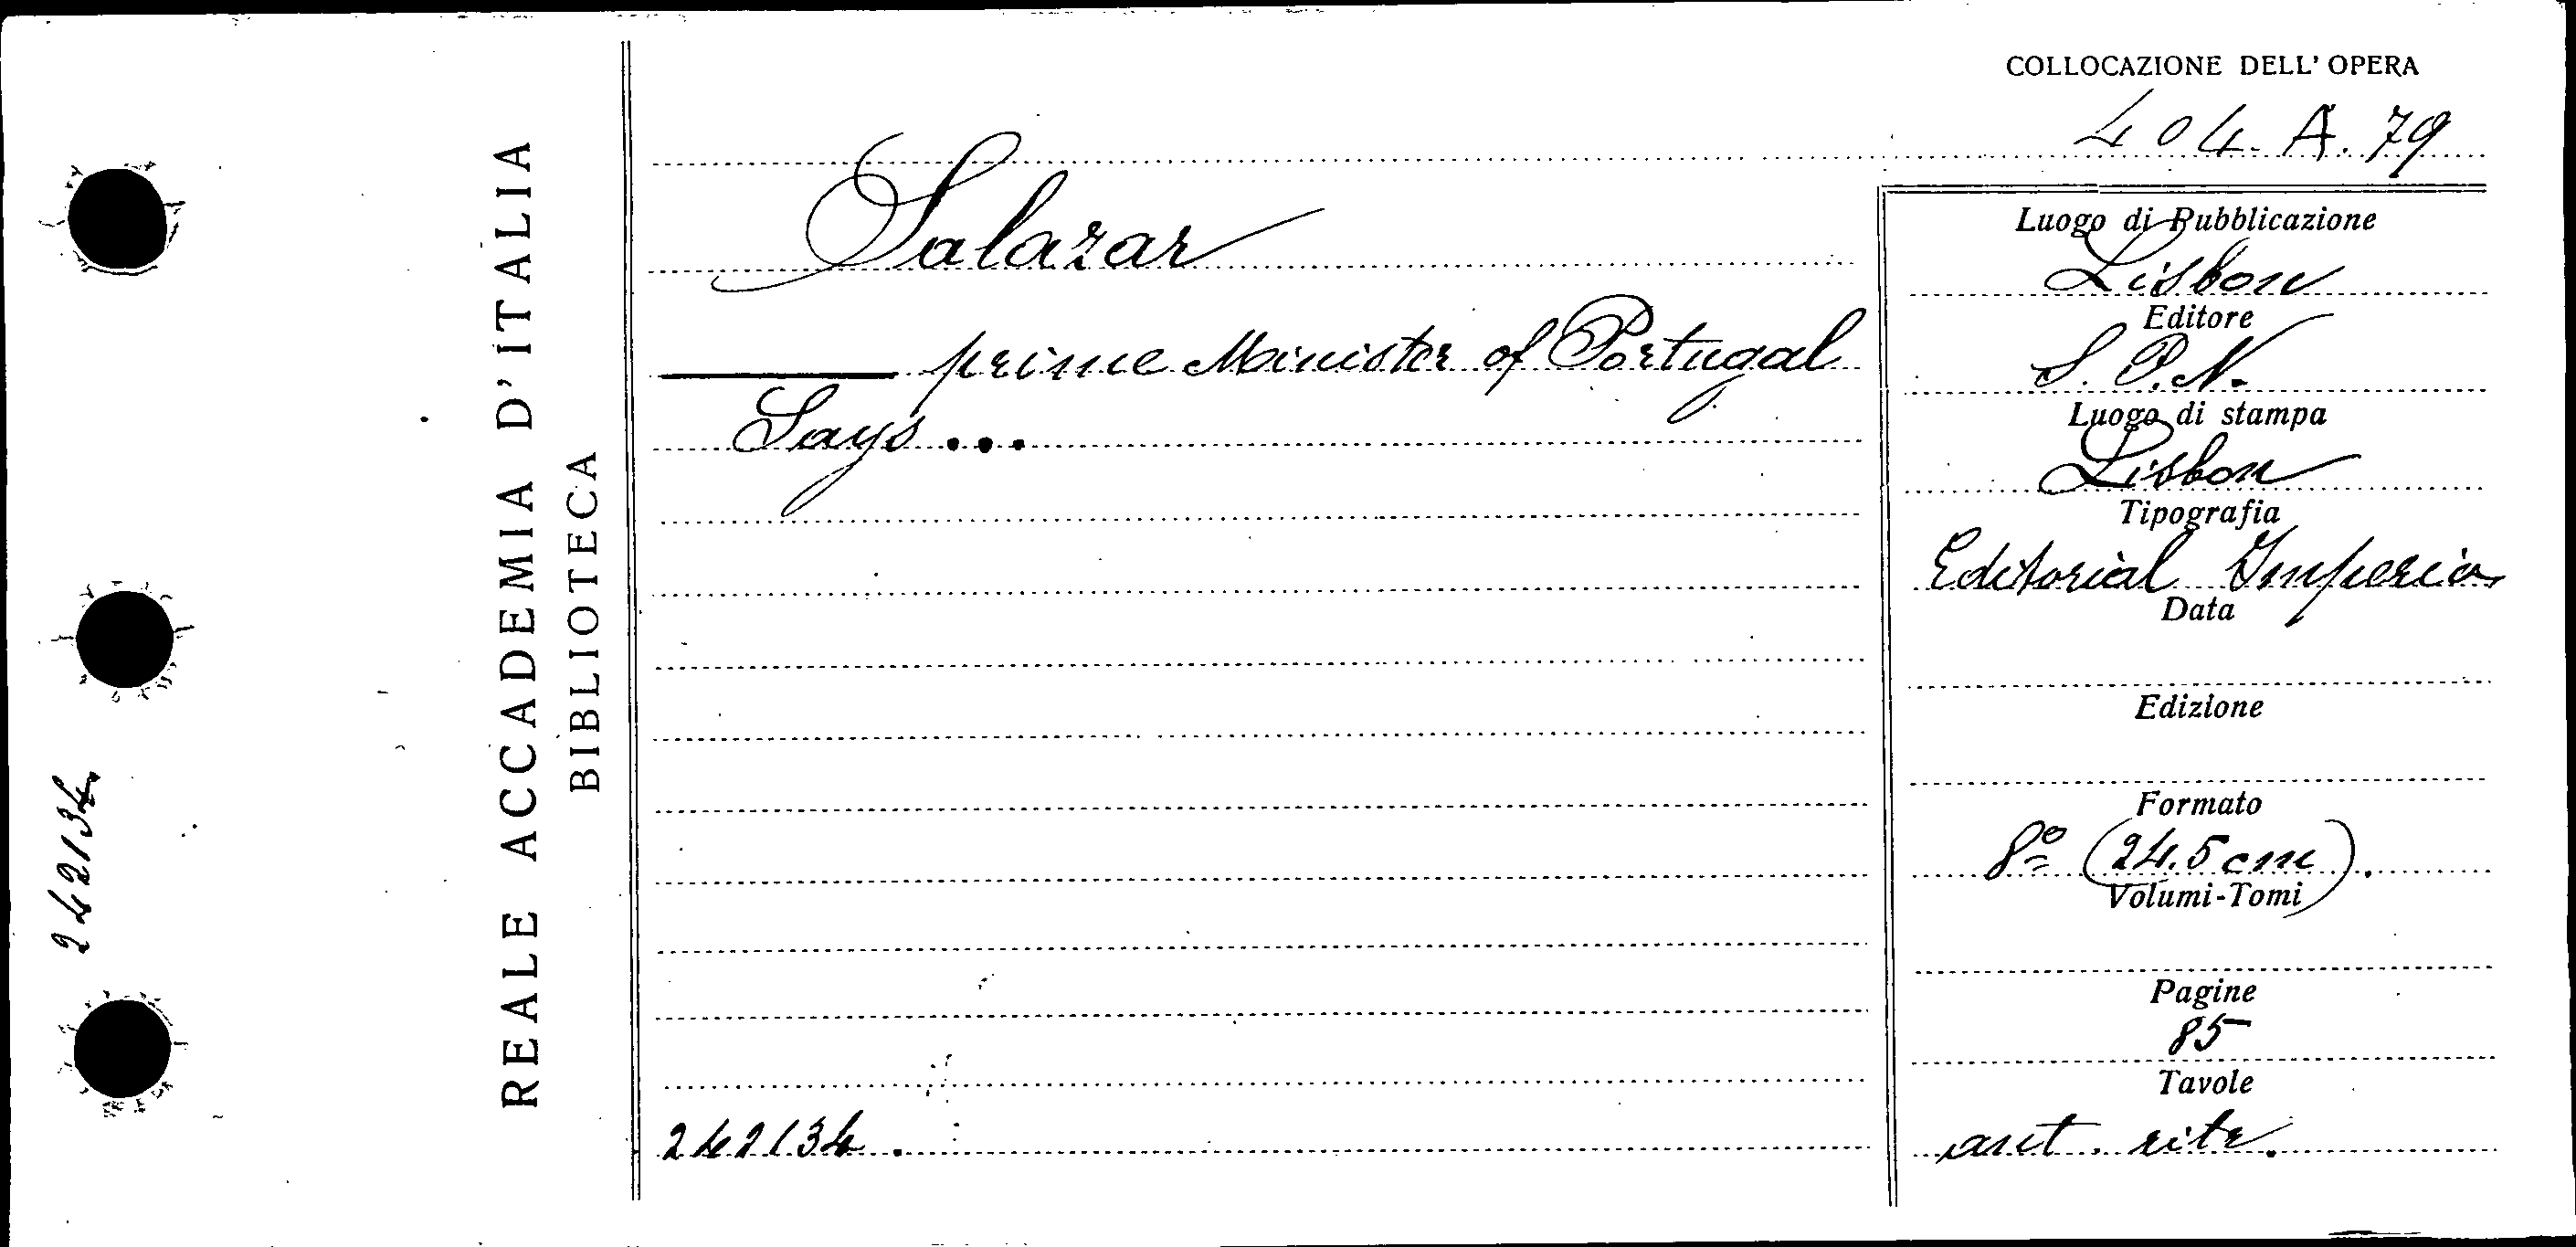 COLLOCAZIONE DELL' OPERA
404. A. 79
REALE ACCADEMIA D'ITALIA
BIBLIOTECA
242134
Salazar
prime Minister of Portugal
Says...
242134.
Luogo di Pubblicazione
Lisbon
Editore
S. P. N.
Luogo di stampa
Lisbon
Tipografia
Editorial Imperio
Data
Edizione
Formato
8º (24.5 cm).
Volumi-Tomi
Pagine
85
Tavole
ant. ritr.